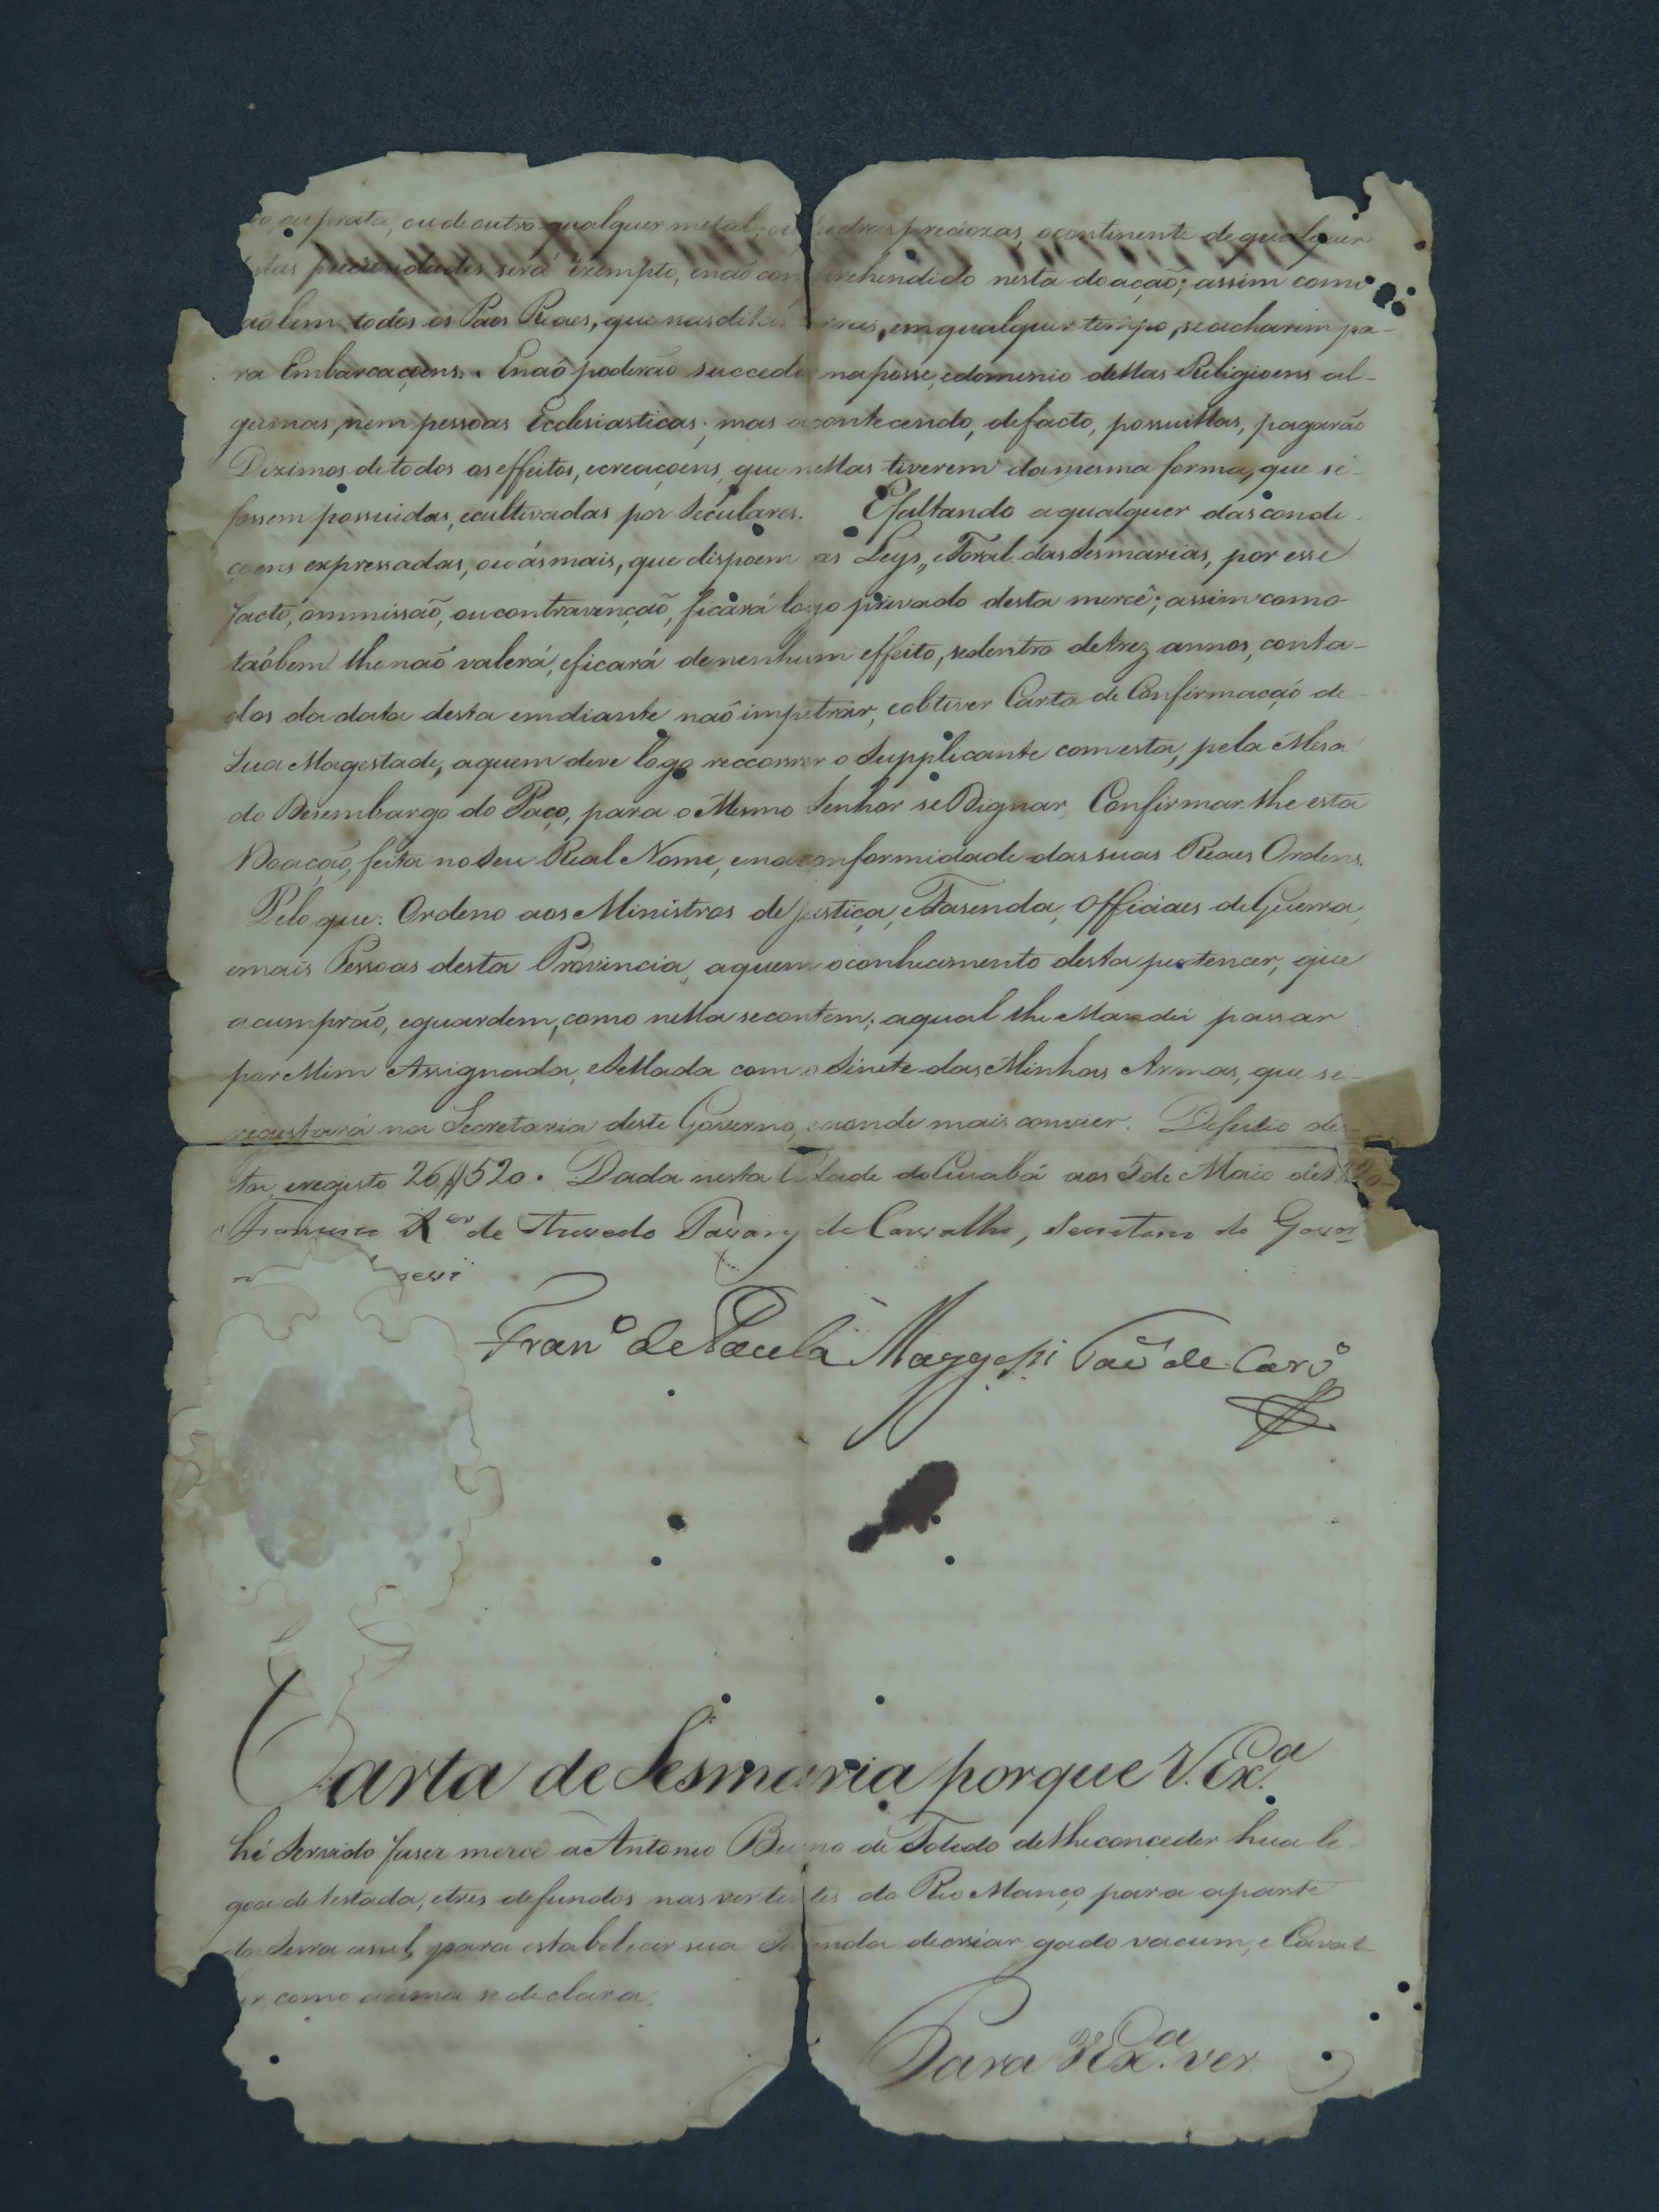 ou prata, ou de outro qualquer metal, ou pedras preciozas, o continente de qualquer
será izempto, e naõ comprehendido nesta doaçaõ; assim como
taõbem todos os Páos Reaes, que nas ditas terras, em qualquer tempo, se acharem pa-
ra Embarcaçoens. E naõ poderáõ succeder na posse, e dominio dellas Religioens al-
gumas, nem pessoas Ecclesiasticas; mas acontecendo, de facto, possuillas, pagaráõ
Dizimos de todos os effeitos, e creaçoens, que nellas tiverem da mesma forma, que se
fossem possuidas, e cultivadas por Seculares. E faltando a qualquer das condi-
çoens expressadas, ou ás mais, que dispoem as Leys, e Foral das Sesmarias, por esse
facto, ommissaõ, ou contravençaõ, ficará logo privado desta mercê; assim como
taõbem lhe naõ valerá, e ficará de nenhum effeito, se dentro de trez annos, conta-
dos da data desta em diante naõ impetrar, e obtiver Carta de Confirmaçaõ de
Sua Magestade, a quem deve logo reccorrer o Supplicante com esta, pela Mesa
do Desembargo do Paço, para o Mesmo Senhor se Dignar Confirmar-lhe esta
Doaçaõ, feita no Seu Real Nome, e na conformidade das suas Reaes Ordens.
Pelo que: Ordeno aos Ministros de Justiça, e Fasenda, Officiaes de Guerra,
e mais Pessoas desta Provincia, a quem o conhecimento desta pertencer, que
a cumpraõ, e guardem, como nella se contem; a qual lhe Mandei passar
por Mim Assignada, e Sellada com o Sinete das Minhas Armas, que se
registará na Secretaria deste Governo, e aonde mais convier. De feitio des-
ta, e registo 26//520. Dada nesta Cidade do Cuiabá aos 5 de Maio de 1820
Francisco X.er de Azevedo Tavares de Carvalho, Secretario do Gover
Fran.º de Paula Maggessi Tav. de Carv.º
Carta de Sesmaria porque V. Ex.ª
hé Servido faser mercê a Antonio Bueno de Toledo de lhe conceder hua le-
goa de testada, e tres de fundos nas vertentes do Rio Manço, para a parte
da Serra asul, para estabelecer sua Fasenda de criar gado vacum, e Caval-
lar, como acima se declara.
Para V. Ex.ª ver